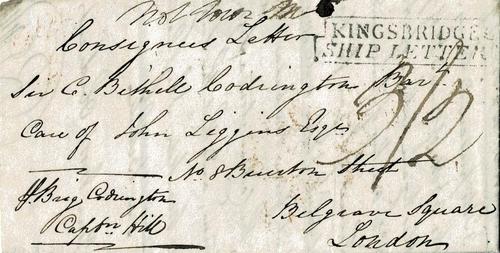 Consignees Letter
KINGSBRIDGE
SHIP LETTER
Sir C. Bethell Codrington Bart.
Care of John Liggins Esqr
No 8 Street
Belgrave Square
London
Brig Codrington
Captn Hill